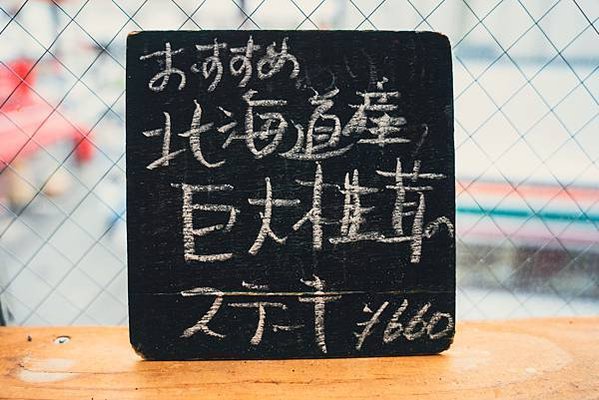 おすすめ
北海道産
巨大椎茸の
ステーキ ¥660